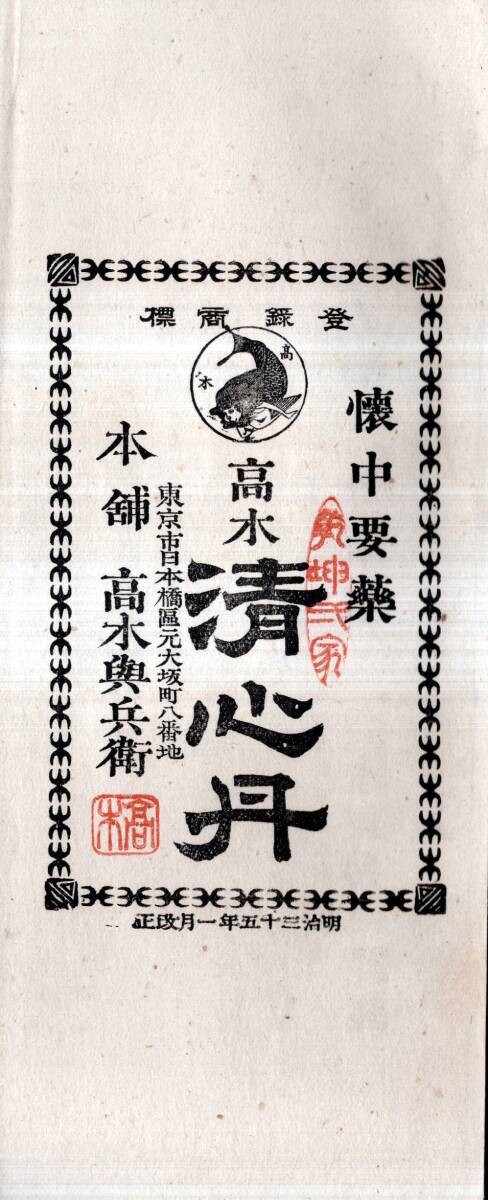 登錄商標
高木
懷中要藥
高木
清心丹
東京市日本橋區元大坂町八番地
本舖 高木與兵衛
高木
明治三十五年一月改正